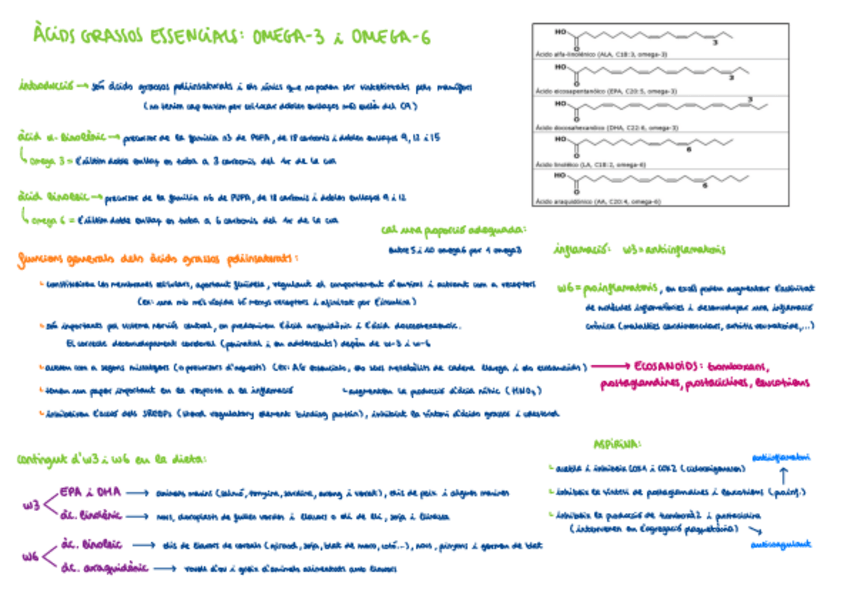 ÀCIDS GRASSOS ESSENCIALS: OMEGA-3 i OMEGA-6
introducció → són àcids grassos poliinsaturats i els únics que no poden ser sintetitzats pels mamífers
(no tenim cap enzim per col·locar dobles enllaços més enllà del C9)
àcid α-linolènic → precursor de la família n3 de PUFA, de 18 carbonis i dobles enllaços 9, 12 i 15
omega 3 = l'últim doble enllaç es troba a 3 carbonis del 1r de la cua
àcid linoleic → precursor de la família n6 de PUFA, de 18 carbonis i dobles enllaços 9 i 12
omega 6 = l'últim doble enllaç es troba a 6 carbonis del 1r de la cua
HO
O
3
Ácido alfa-linolénico (ALA, C18:3, omega-3)
HO
O
3
Ácido eicosapentanóico (EPA, C20:5, omega-3)
HO
O
3
Ácido docosahexanóico (DHA, C22:6, omega-3)
HO
O
6
Ácido linoléico (LA, C18:2, omega-6)
HO
O
6
Ácido araquidónico (AA, C20:4, omega-6)
cal una proporció adequada:
entre 5 i 10 omega6 per 1 omega3
funcions generals dels àcids grassos poliinsaturats:
constitueixen les membranes cel·lulars, aportant fluïdesa, regulant el comportament d'enzims i actuant com a receptors
(ex: una mb més rígida té menys receptors i afinitat per l'insulina)
són importants pel sistema nerviós central, on predominen l'àcid araquidònic i l'àcid docosahexaenoic.
El correcte desenvolupament cerebral (perinatal i en adolescents) depèn de w-3 i w-6
actuen com a segons missatgers (o precursors d'aquests) (ex: AG essencials, els seus metabòlits de cadena llarga i els eicosanoids) → ECOSANOIDS: tromboxans,
prostaglandines, prostaciclines, leucotriens
tenen un paper important en la resposta a la inflamació
augmenten la producció d'àcid nítric (HNO3)
inhibeixen l'acció dels SREBPs (sterol regulatory element binding protein), inhibint la síntesi d'àcids grassos i colesterol
inflamació: w3 = antiinflamatoris
w6 = proinflamatoris, en excés poden augmentar l'activitat
de molècules inflamatòries i desenvolupar una inflamació
crònica (malalties cardiovasculars, artritis reumatoide,...)
contingut d'w3 i w6 en la dieta:
w3
EPA i DHA → animals marins (salmó, tonyina, sardina, areng i verat), olis de peix i algues marines
àc. linolènic → nous, cloroplasts de fulles verdes i llavors o oli de lli, soja i llinassa
w6
àc. linoleic → olis de llavors de cereals (gira-sol, soja, blat de moro, cotó...), nous, pinyons i germen de blat
àc. araquidònic → rovell d'ou i greix d'animals alimentats amb llavors
ASPIRINA:
acetila i inhibeix COX1 i COX2 (ciclooxigenases)
inhibeix la síntesi de prostaglandines i leucotriens (proinf.)
antiinflamatori
inhibeix la producció de tromboxà2 i prostaciclina
(intervenen en l'agregació plaquetària)
anticoagulant